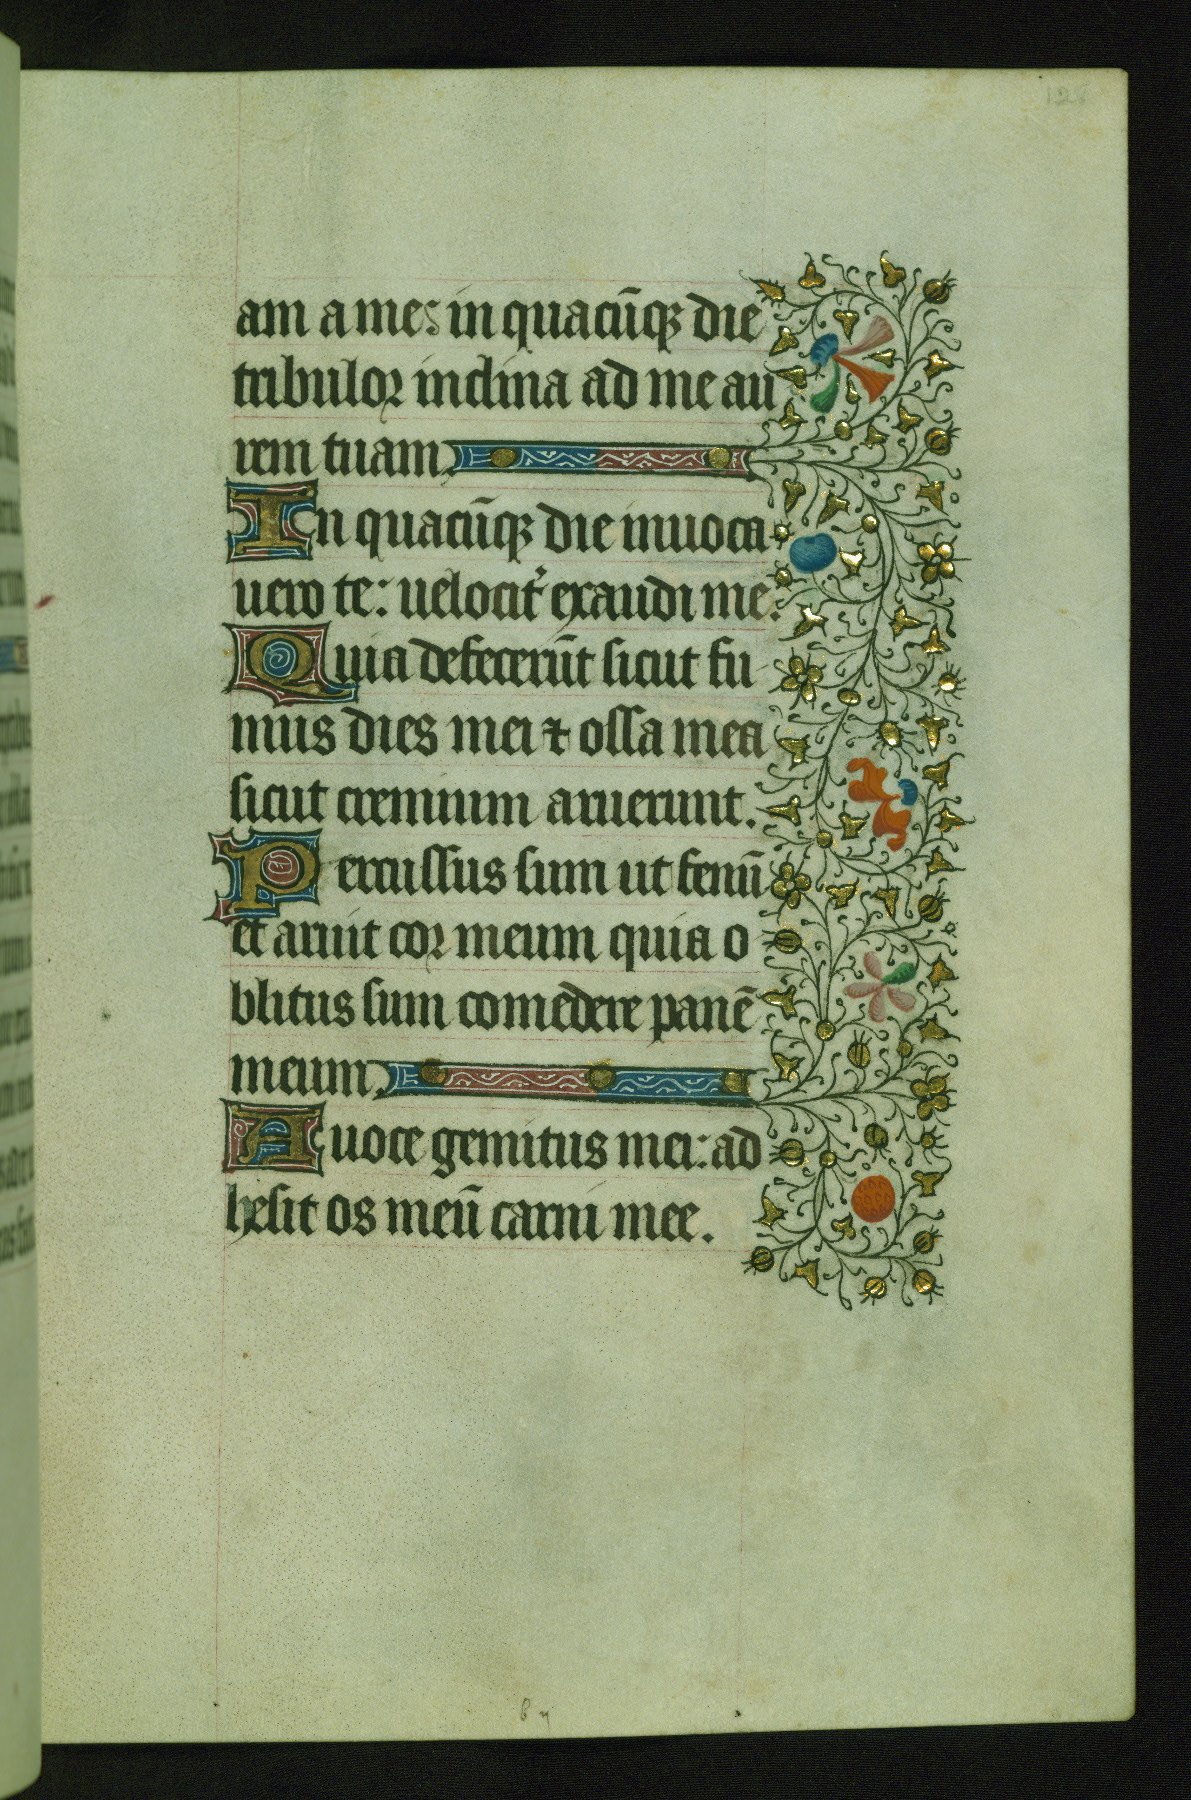 am a me: in quacūq₃ die
tribulor inclina ad me au
rem tuam
In quacūq₃ die inuoca
uero te: uelocit᷑ exaudi me.
Quia defecerūt sicut fu
mus dies mei ⁊ ossa mea
sicut cremium aruerunt.
Percussus sum ut fenū
et aruit cor meum quia o
blitus sum comedere panē
meum
A uoce gemitus mei: ad
hesit os meū carni mee.